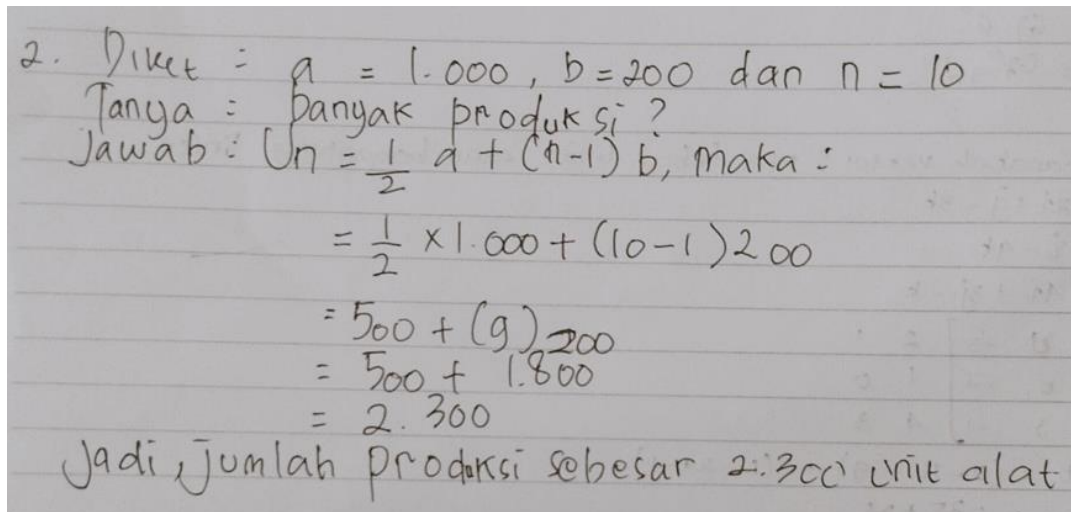 2. Diket : a = 1.000, b = 200 dan n = 10
Tanya : banyak produksi ?
Jawab : Un = 1/2 a + (n-1) b, maka :
= 1/2 × 1.000 + (10-1) 200
= 500 + (9) 200
= 500 + 1.800
= 2.300
Jadi, jumlah produksi sebesar 2.300 unit alat